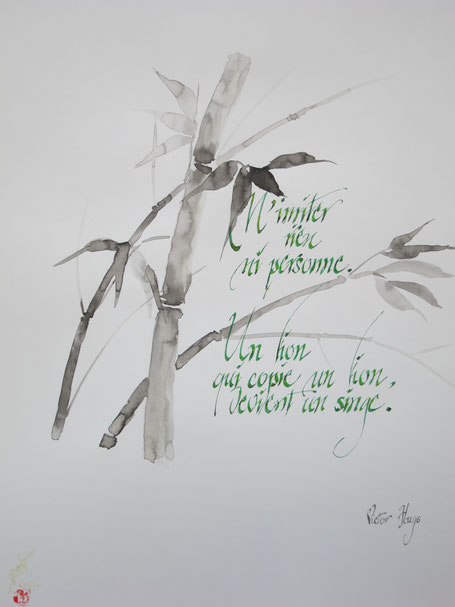 N'imiter
rien
ni personne.
Un lion
qui copie un lion,
devient un singe.
Victor Hugo